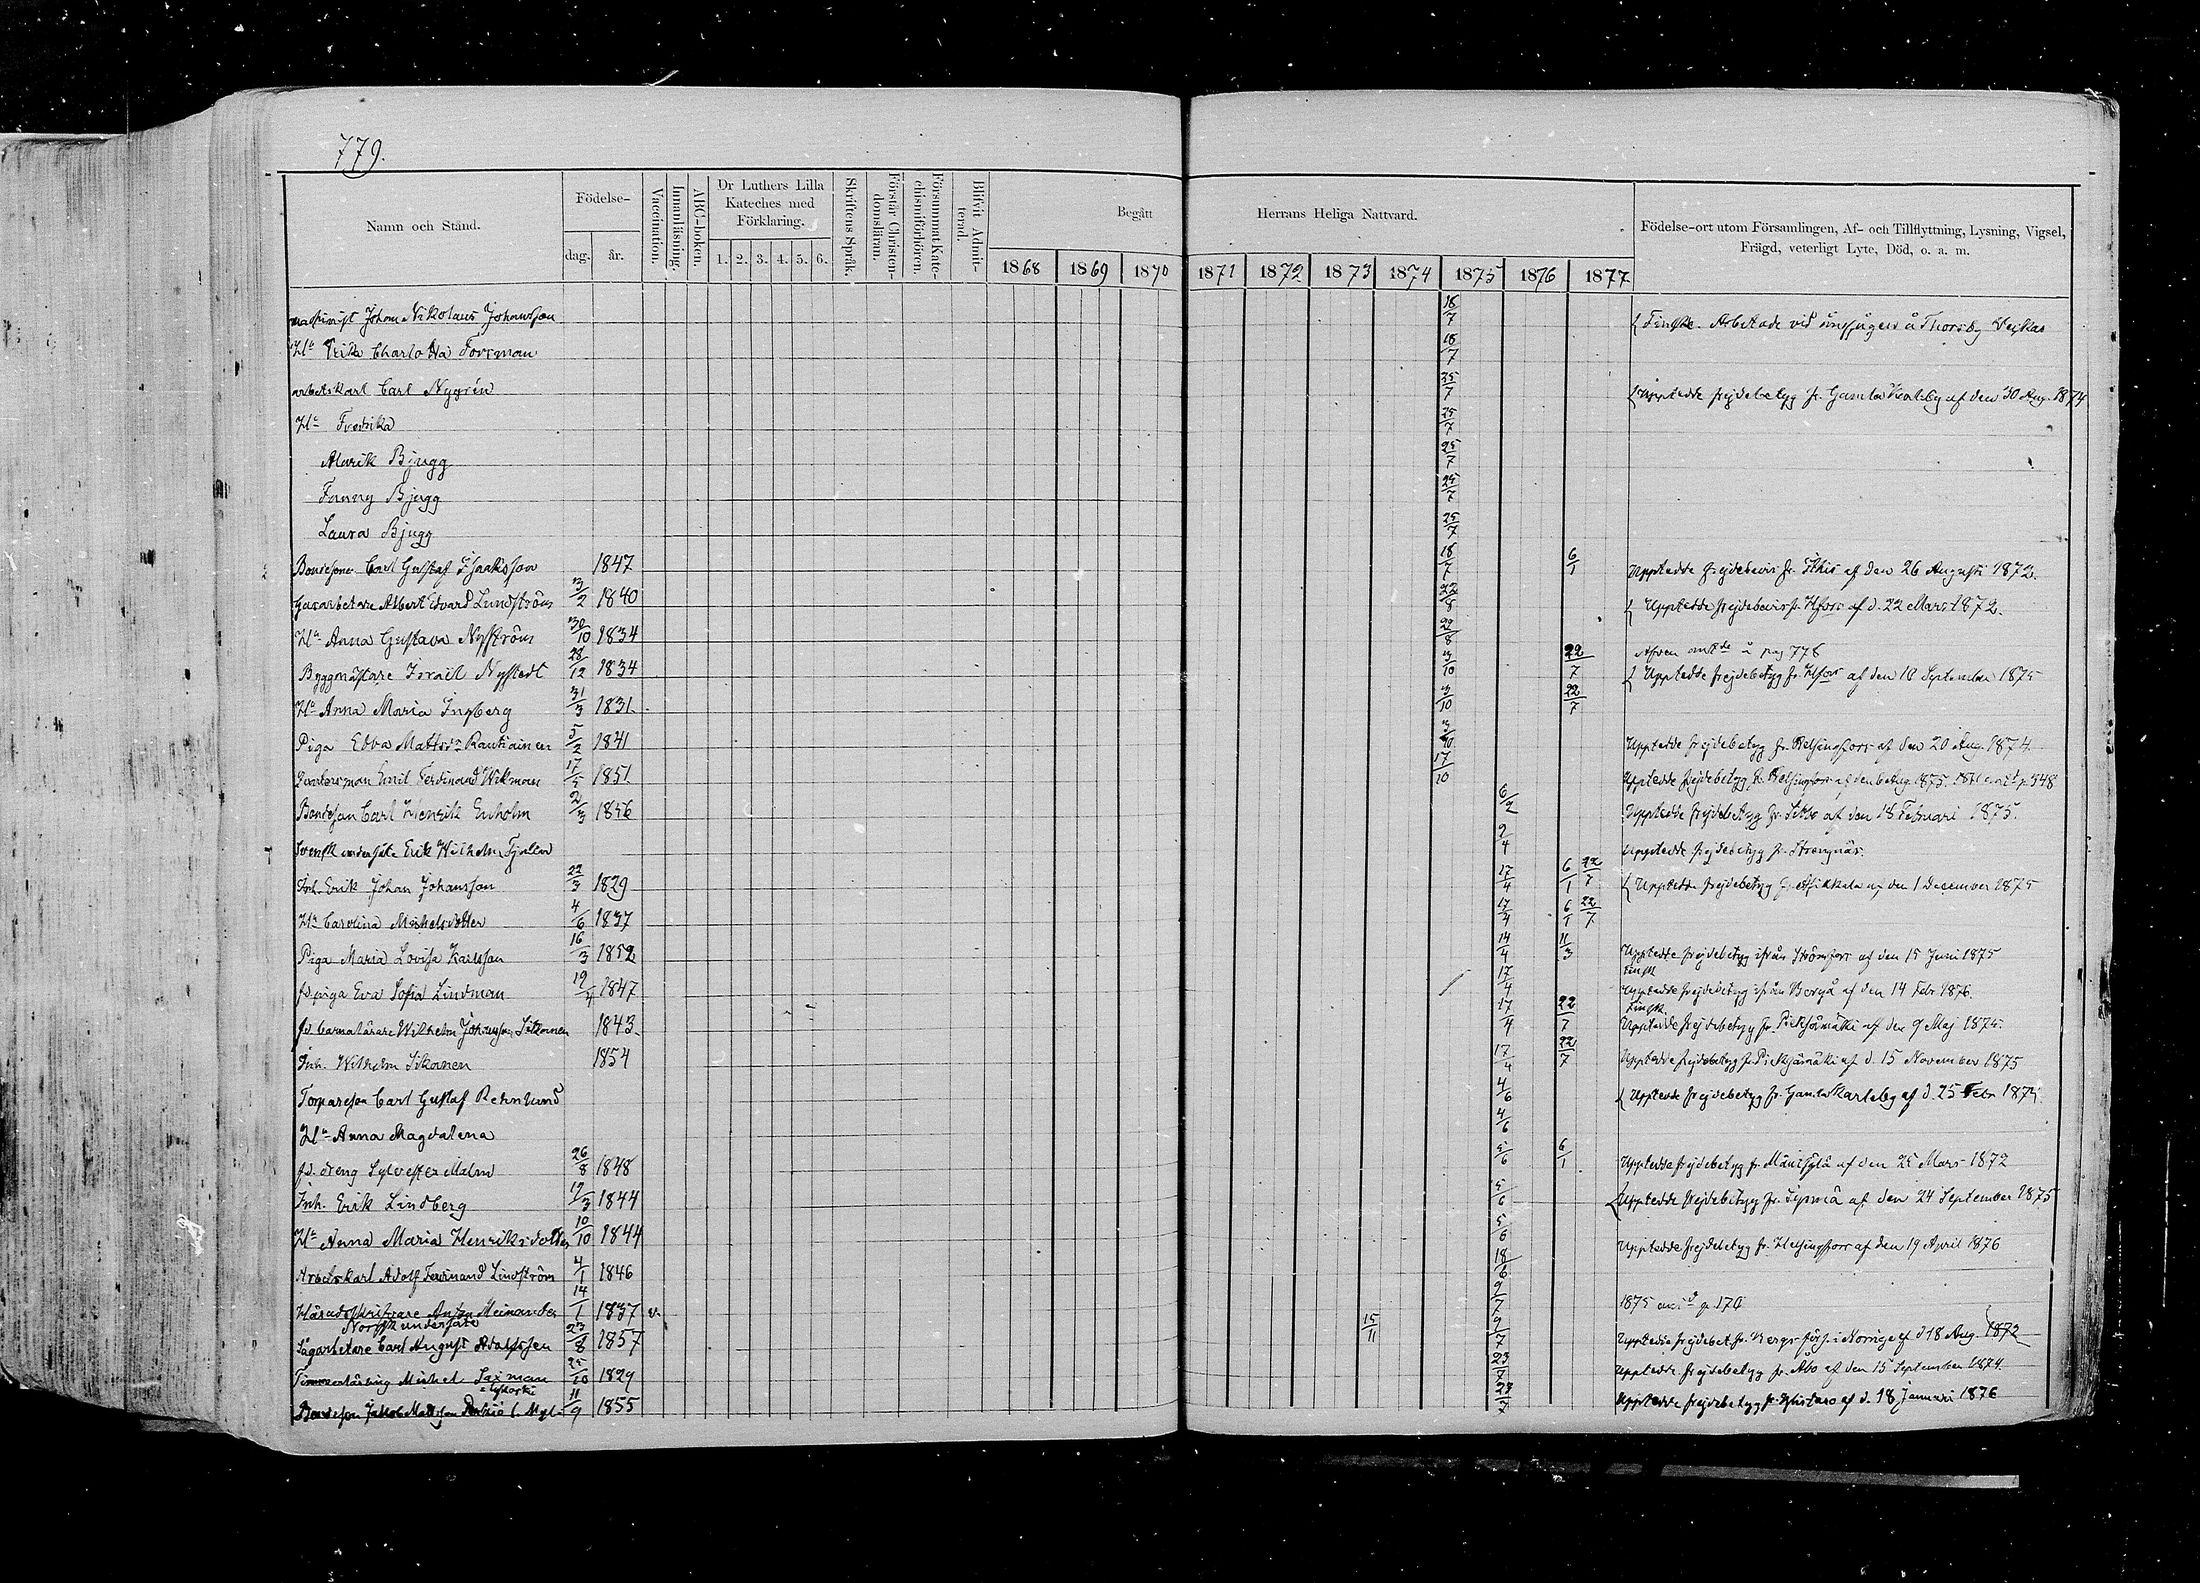 779.
Namn och Stånd. Födelse- dag. år. Vaccination. Innanläsning. ABC-boken. Dr Luthers Lilla Kateches med Förklaring. 1. 2. 3. 4. 5. 6. Skriftens Språk. Förstår Christendomsläran. Försummat Katechismiförhören. Blifvit Admitterad. Begått Herrans Heliga Nattvard. 1868 1869 1870 1871 1872 1873 1874 1875 1876 1877 Födelse-ort utom Församlingen, Af- och Tillflyttning, Lysning, Vigsel, Frägd, veterligt Lyte, Död, o. a. m.
machinist Johan Nikolaus Johansson 18/7 Finske. Arbetade vid ångsågen å Thorsby
Hu Charlotta Forsman 18/7
arbetskarl Carl Nygrén 25/7 Upptedde frejdebetyg fr. Gamla Karleby af den 30 Aug. 1874
Hu Fredrika 25/7
Bjugg 25/7
Fanny Bjugg 25/7
Laura Bjugg 25/7
Bondeson Carl Gustaf Isaaksson 1847 18/7 6/1 Upptedde frejdebevis fr. Sthis af den 26 Augusti 1872.
Albert Edvard Lundström 13/2 1840 22/8 Upptedde frejdebevis fr. Hfors af d. 22 Mars 1872.
Hu Anna Gustava Nyström 30/10 1834 22/8
Byggmästare Israël Nystedt 28/12 1834 3/10 22/7 Äfven ant:de å pag 778 Upptedde frejdebetyg fr. Hfors af den 10 September 1875
Hu Anna Maria Ingberg 31/3 1831. 3/10 22/7
Piga Edva Mattsdr Rautiainen 5/2 1841 3/10 Upptedde frejdebetyg fr. Helsingfors af den 20 Aug. 1874
Emil Ferdinand Wikman 17/5 1851. 17/10 Upptedde frejdebetyg fr. Helsingfors af den 6 Aug 1875. p. 548
Bondeson Carl Henrik Enholm 2/3 1856 6/2 Upptedde frejdebetyg fr. Sibbo af den 18 Februari 1875.
Svensk undersåte Erik Wilhelm 2/4 Upptedde frejdebetyg fr. Strengnäs.
Inh. Erik Johan Johansson 22/3 1829 17/4 6/1 22/7 Upptedde frejdebetyg fr. Asikkala af den 1 December 1875
Hu Carolina Michelsdotter 4/6 1837 17/4 6/1 22/7
Piga Maria Lovisa Karlsson 16/3 1852 14/4 11/3 Upptedde frejdebetyg ifrån Strömfors af den 15 Juni 1875
fd. piga Eva Sofia Lindman 19/4 1847 17/4 Finsk Upptedde frejdebetyg ifrån Borgå af den 14 Febr 1876.
fd. Wilhelm Johansson Sikanen 1843. 17/4 22/7 Finsk. Upptedde frejdebetyg fr. Pieksämäki af den 9 Maj 1875.
Inh. Wilhelm Sikanen 1854 17/4 22/7 Upptedde frejdebetyg fr. Pieksämäki af d. 15 November 1875
Torpareson Carl Gustaf Rehnlund 4/6 Upptedde frejdebetyg fr. Gamla Karleby af d. 25 Febr 1875.
Hu Anna Magdalena 4/6
fd. dreng Sylvester Malm 26/8 1848 5/6 6/1 Upptedde frejdebetyg fr. Mäntsälä af den 25 Mars 1872
Inh. Erik Lindberg 19/3 1844 5/6 Upptedde frejdebetyg fr. Sysmä af den 24 September 1875
Hu Anna Maria Henriksdotter 10/10 1844 5/6
Arbetskarl Adolf Ferdinand Lindström 4/1 1846 18/6 Upptedde frejdebetyg fr. Helsingfors af den 19 April 1876
Häradsskrifvare Anton Meinander 14/1 1837 v. 9/7 1875 p. 170
Norsk undersåte
Sågarbetare Carl August Adolfsson 23/8 1857 15/11 9/7 Upptedde frejdebet. fr. Bergs förs. i Norrige af d 18 Aug. 1872
Michel Laxman 25/10 1829 23/7 Upptedde frejdebetyg fr. Åbo af den 15 September 1874
Bondeson Jakob Mattsson 11/9 1855 23/7 Upptedde frejdebetyg fr. af d. 18 Januari 1876